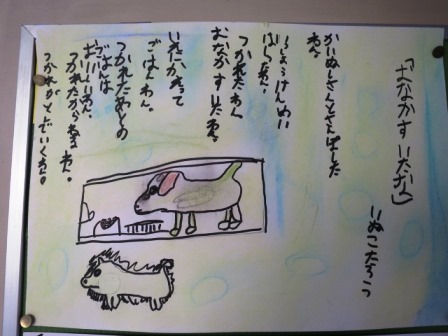 「おなかすいたな」
いぬこたろう
かいぬしさんとさんぽした
わん。
いっしょうけんめい
はしったわん。
つかれたわん
おなかすいたわん。
いえにかえって
ごはんわん。
つかれたあとの
ごはんは
おいしいわん。
つかれたからねるわん。
つかれがとんでいくわん。